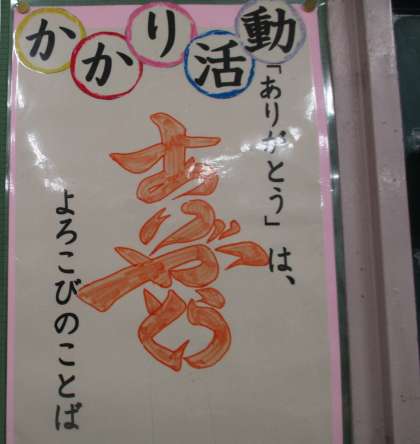 かかり活動
「ありがとう」は、
ありがとう
よろこびのことば